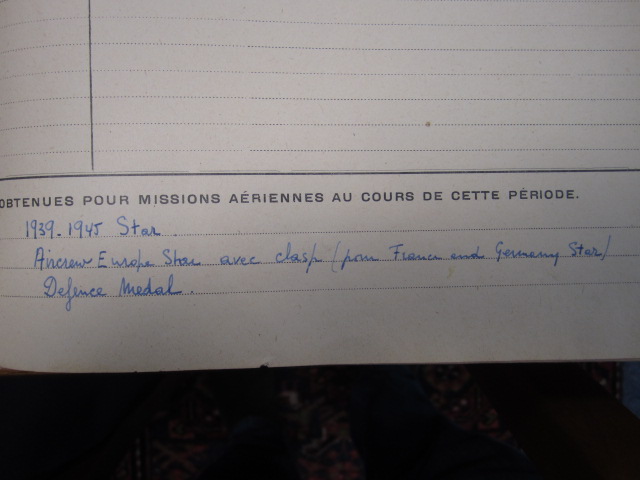 OBTENUES POUR MISSIONS AÉRIENNES AU COURS DE CETTE PÉRIODE.
1939-1945 Star.
Aircrew Europe Star avec clasp (pour France and Germany Star)
Defence Medal.